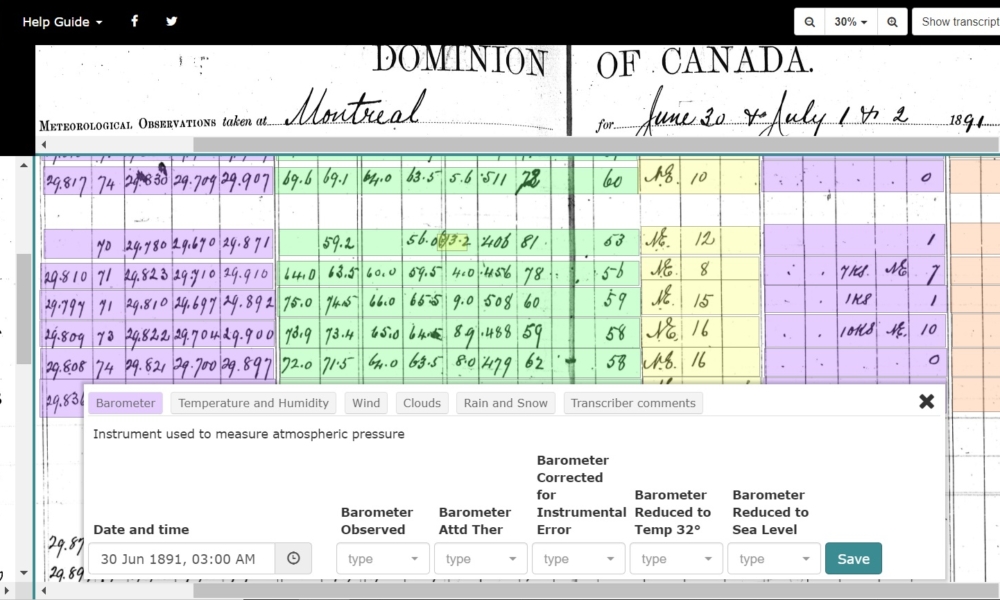 Help Guide
30%
Show transcript
DOMINION OF CANADA.
METEOROLOGICAL OBSERVATIONS taken at Montreal for June 30 & July 1 & 2 1891
29.817 74 29.830 29.709 29.907 69.6 69.1 64.0 63.5 5.6 .511 72 60 N.E. 10 0
70 29.780 29.670 29.871 59.2 56.0 3.2 406 81 53 N.E. 12 1
29.810 71 29.823 29.710 29.910 64.0 63.5 60.0 59.5 4.0 .456 78 56 N.E. 8 7KS N.E. 7
29.797 71 29.810 29.697 29.892 75.0 74.5 66.0 65.5 9.0 508 60 59 N.E. 15 1KS 1
29.809 73 29.822 29.704 29.900 73.9 73.4 65.0 64.5 8.9 .488 59 58 N.E. 16 10KS N.E. 10
29.808 74 29.821 29.700 29.897 72.0 71.5 64.0 63.5 8.0 .479 62 58 N.E. 16 0
29.836
Barometer Temperature and Humidity Wind Clouds Rain and Snow Transcriber comments
Instrument used to measure atmospheric pressure
Date and time
Barometer Observed
Barometer Attd Ther
Barometer Corrected for Instrumental Error
Barometer Reduced to Temp 32°
Barometer Reduced to Sea Level
30 Jun 1891, 03:00 AM type type type type type Save
29.87
29.89